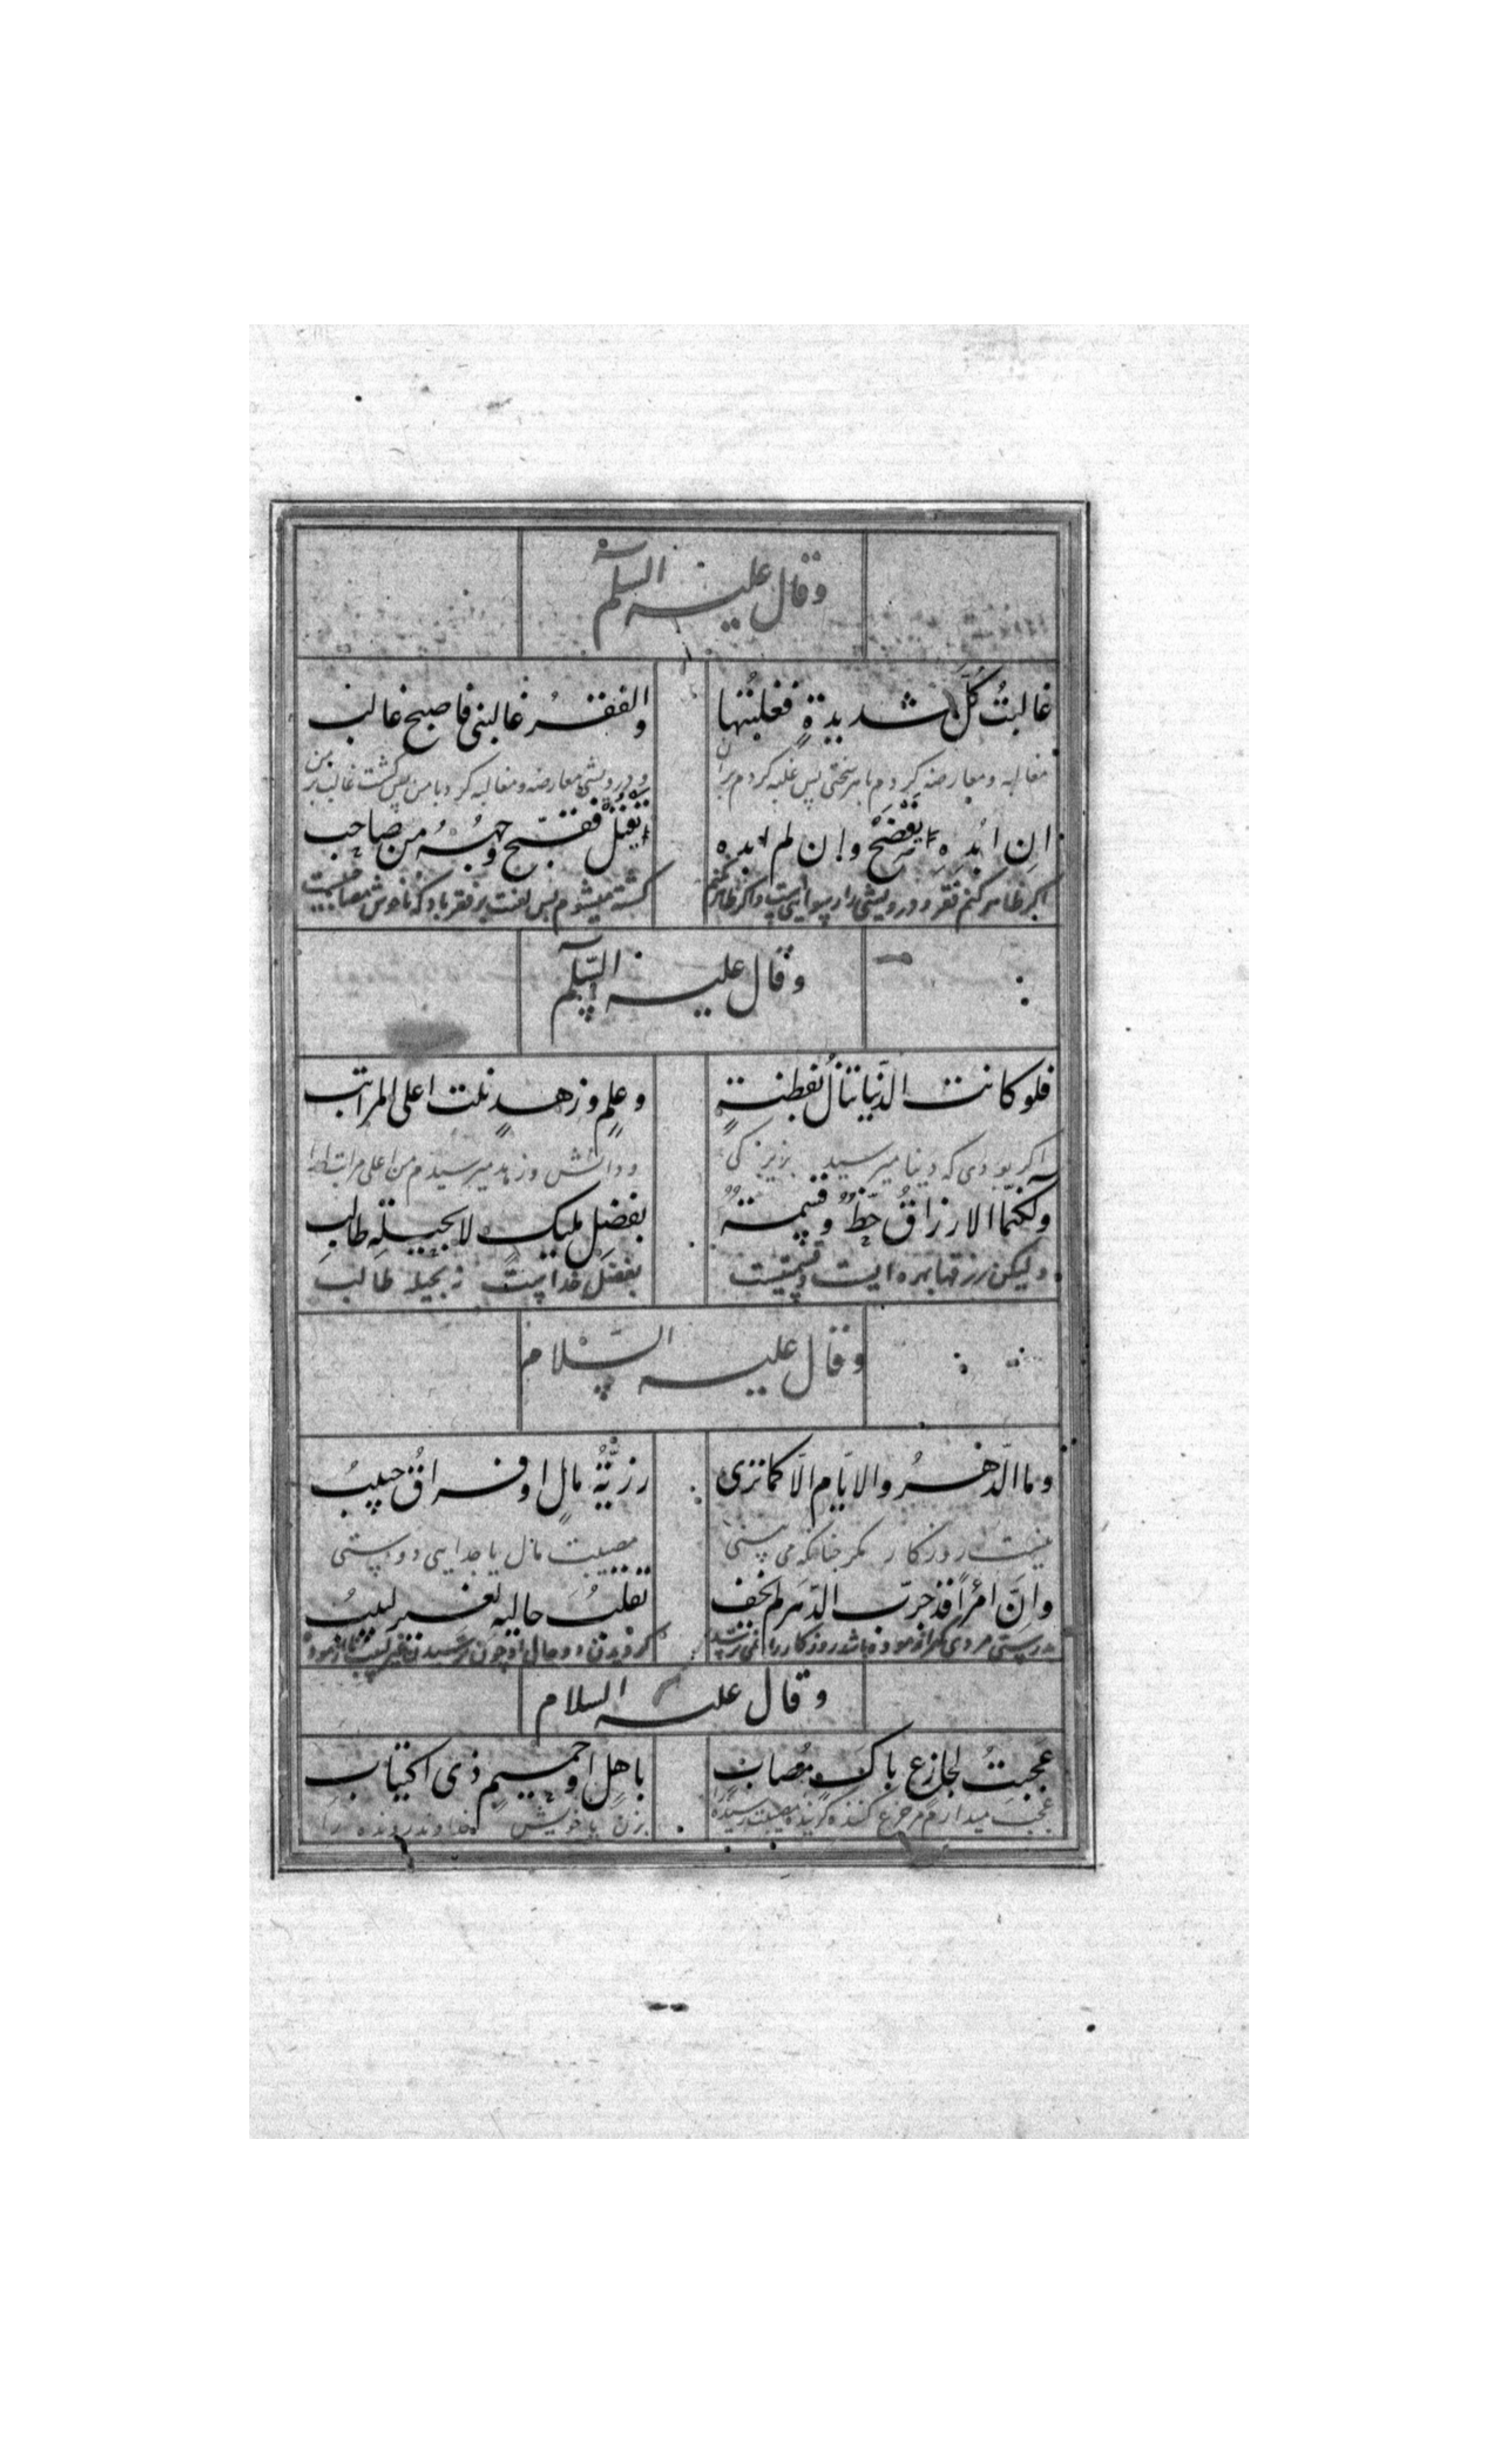 وقال عليه السلم
غالبتُ كُلَّ شديدةٍ فغلبتُها والفقرُ غالبنی فاصبح غالبی
مغالبه ومعارضه کردم با هر سختی پس غلبه کردم بر ان ودرویشی معارضه ومغالبه کرد با من پس کشت غالب بر من
ان ابُدِهِ یَفْضَحْ وإن لم ابدِه یَقْتُلْ فقبّح وجهُهُ من صاحبِ
اکر ظاهر کنم فقر ودرویشی را رسوایی است واکر ظاهر نکنم کشته میشوم پس لعنت بر فقر باد که ناخوش مصاحبیست
وقال عليه السّلم
فلو كانت الدّنيا تنالُ بفطنةٍ وعلمٍ وزهدٍ نلت اعلى المراتب
اکر بودی که دنیا میرسید بزیرکی ودانش وزهد میرسیدم من اعلی مراتب را
ولكنّما الارزاقُ حظٌّ وقسمةٌ بفضلِ مليكٍ لا بحيلةِ طالبِ
ولیکن رزقها بهره ایست وقسمتیست بفضل خداست نه بحیله طالب
وقال عليه السّلام
وما الدّهرُ والايّام الّا كما ترى رزيّةُ مالٍ او فراقُ حبيبُ
نیست روزکار مکر چنانکه می بینی مصیبت مال یا جدایی دوستی
وانَّ امْرأً قد جرّب الدّهر لم يخف تقلّبُ حاليه لغير لبيبُ
بدرستی مردی که ازموده باشد روزکار را نمی ترسد کردیدن دو حال او
وقال عليه السلام
عجبتُ لجازع باكٍ مُصابٍ باهلٍ او حميمٍ ذی اكتيابِ
عجب میدارم مر جزع کننده کرینده مصیبت رسیده را بزن یا خویش